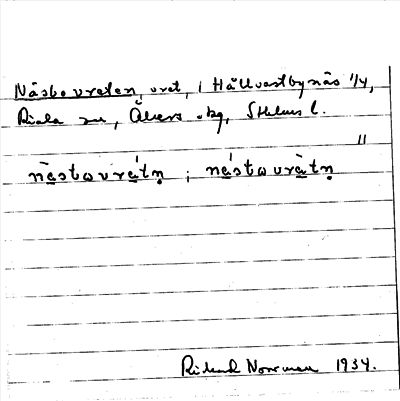 Näsbovreten, vret, i Hållvastbynäs 1/4,
Riala sn, Åkers skg, Sthlms l.
"
näsbωvrätn̥ ; näsbωvrätn̥
Rickard Norrman 1934.